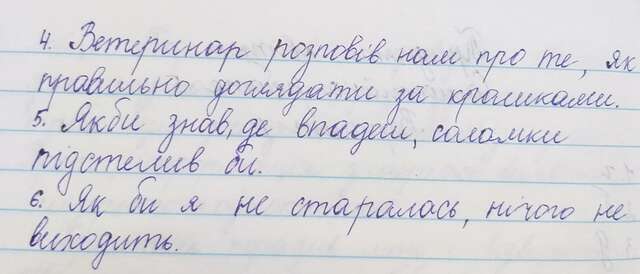 4. Ветеринар розповів нам про те, як
правильно доглядати за кроликами.
5. Якби знав, де впадеш, соломки
підстелив би.
6. Як би я не старалась, нічого не
виходить.